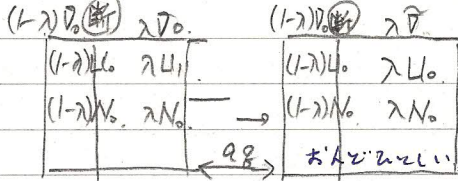 (1-λ)V₀ 断 λV₀. (1-λ)V₀ 断 λV
(1-λ)U₀ λU₁ (1-λ)U₀ λU₀
(1-λ)N₀. λN₀ → (1-λ)N₀ λN₀
おんどひとしい